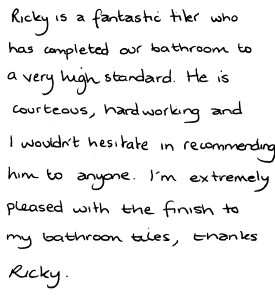 Ricky is a fantastic tiler who
has completed our bathroom to
a very high standard. He is
courteous, hardworking and
I wouldn't hesitate in recommending
him to anyone. I'm extremely
pleased with the finish to
my bathroom tiles, thanks
Ricky.